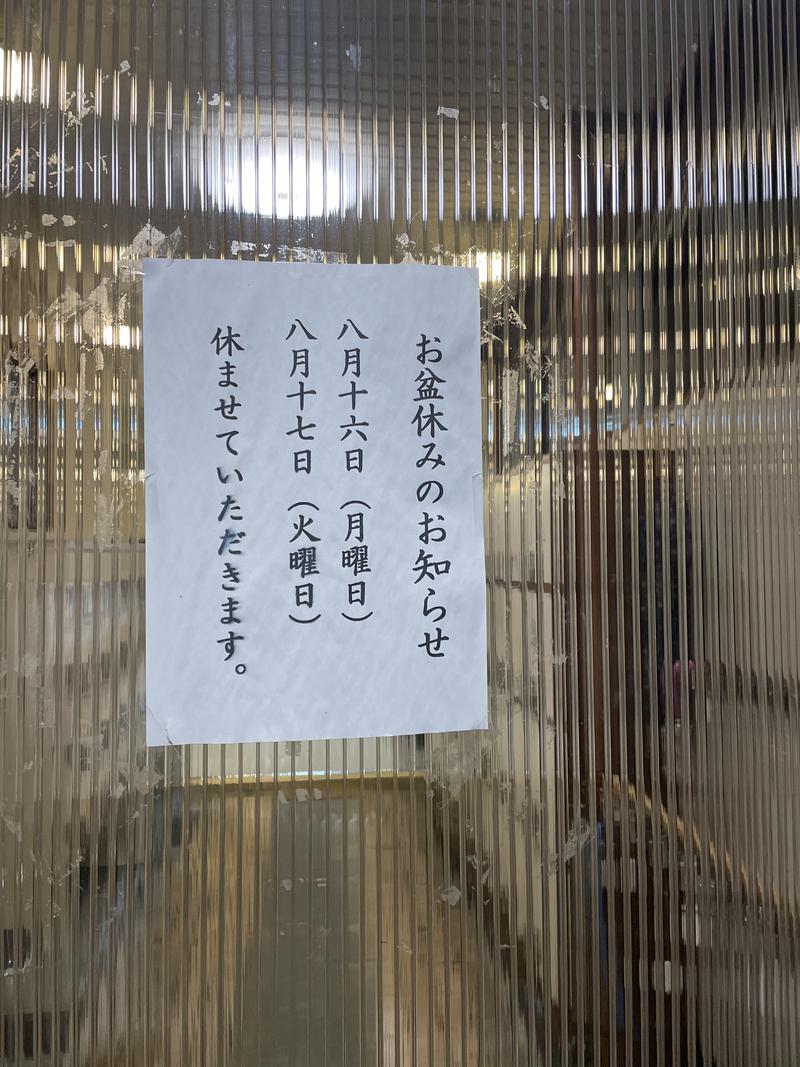 お盆休みのお知らせ
八月十六日（月曜日）
八月十七日（火曜日）
休ませていただきます。